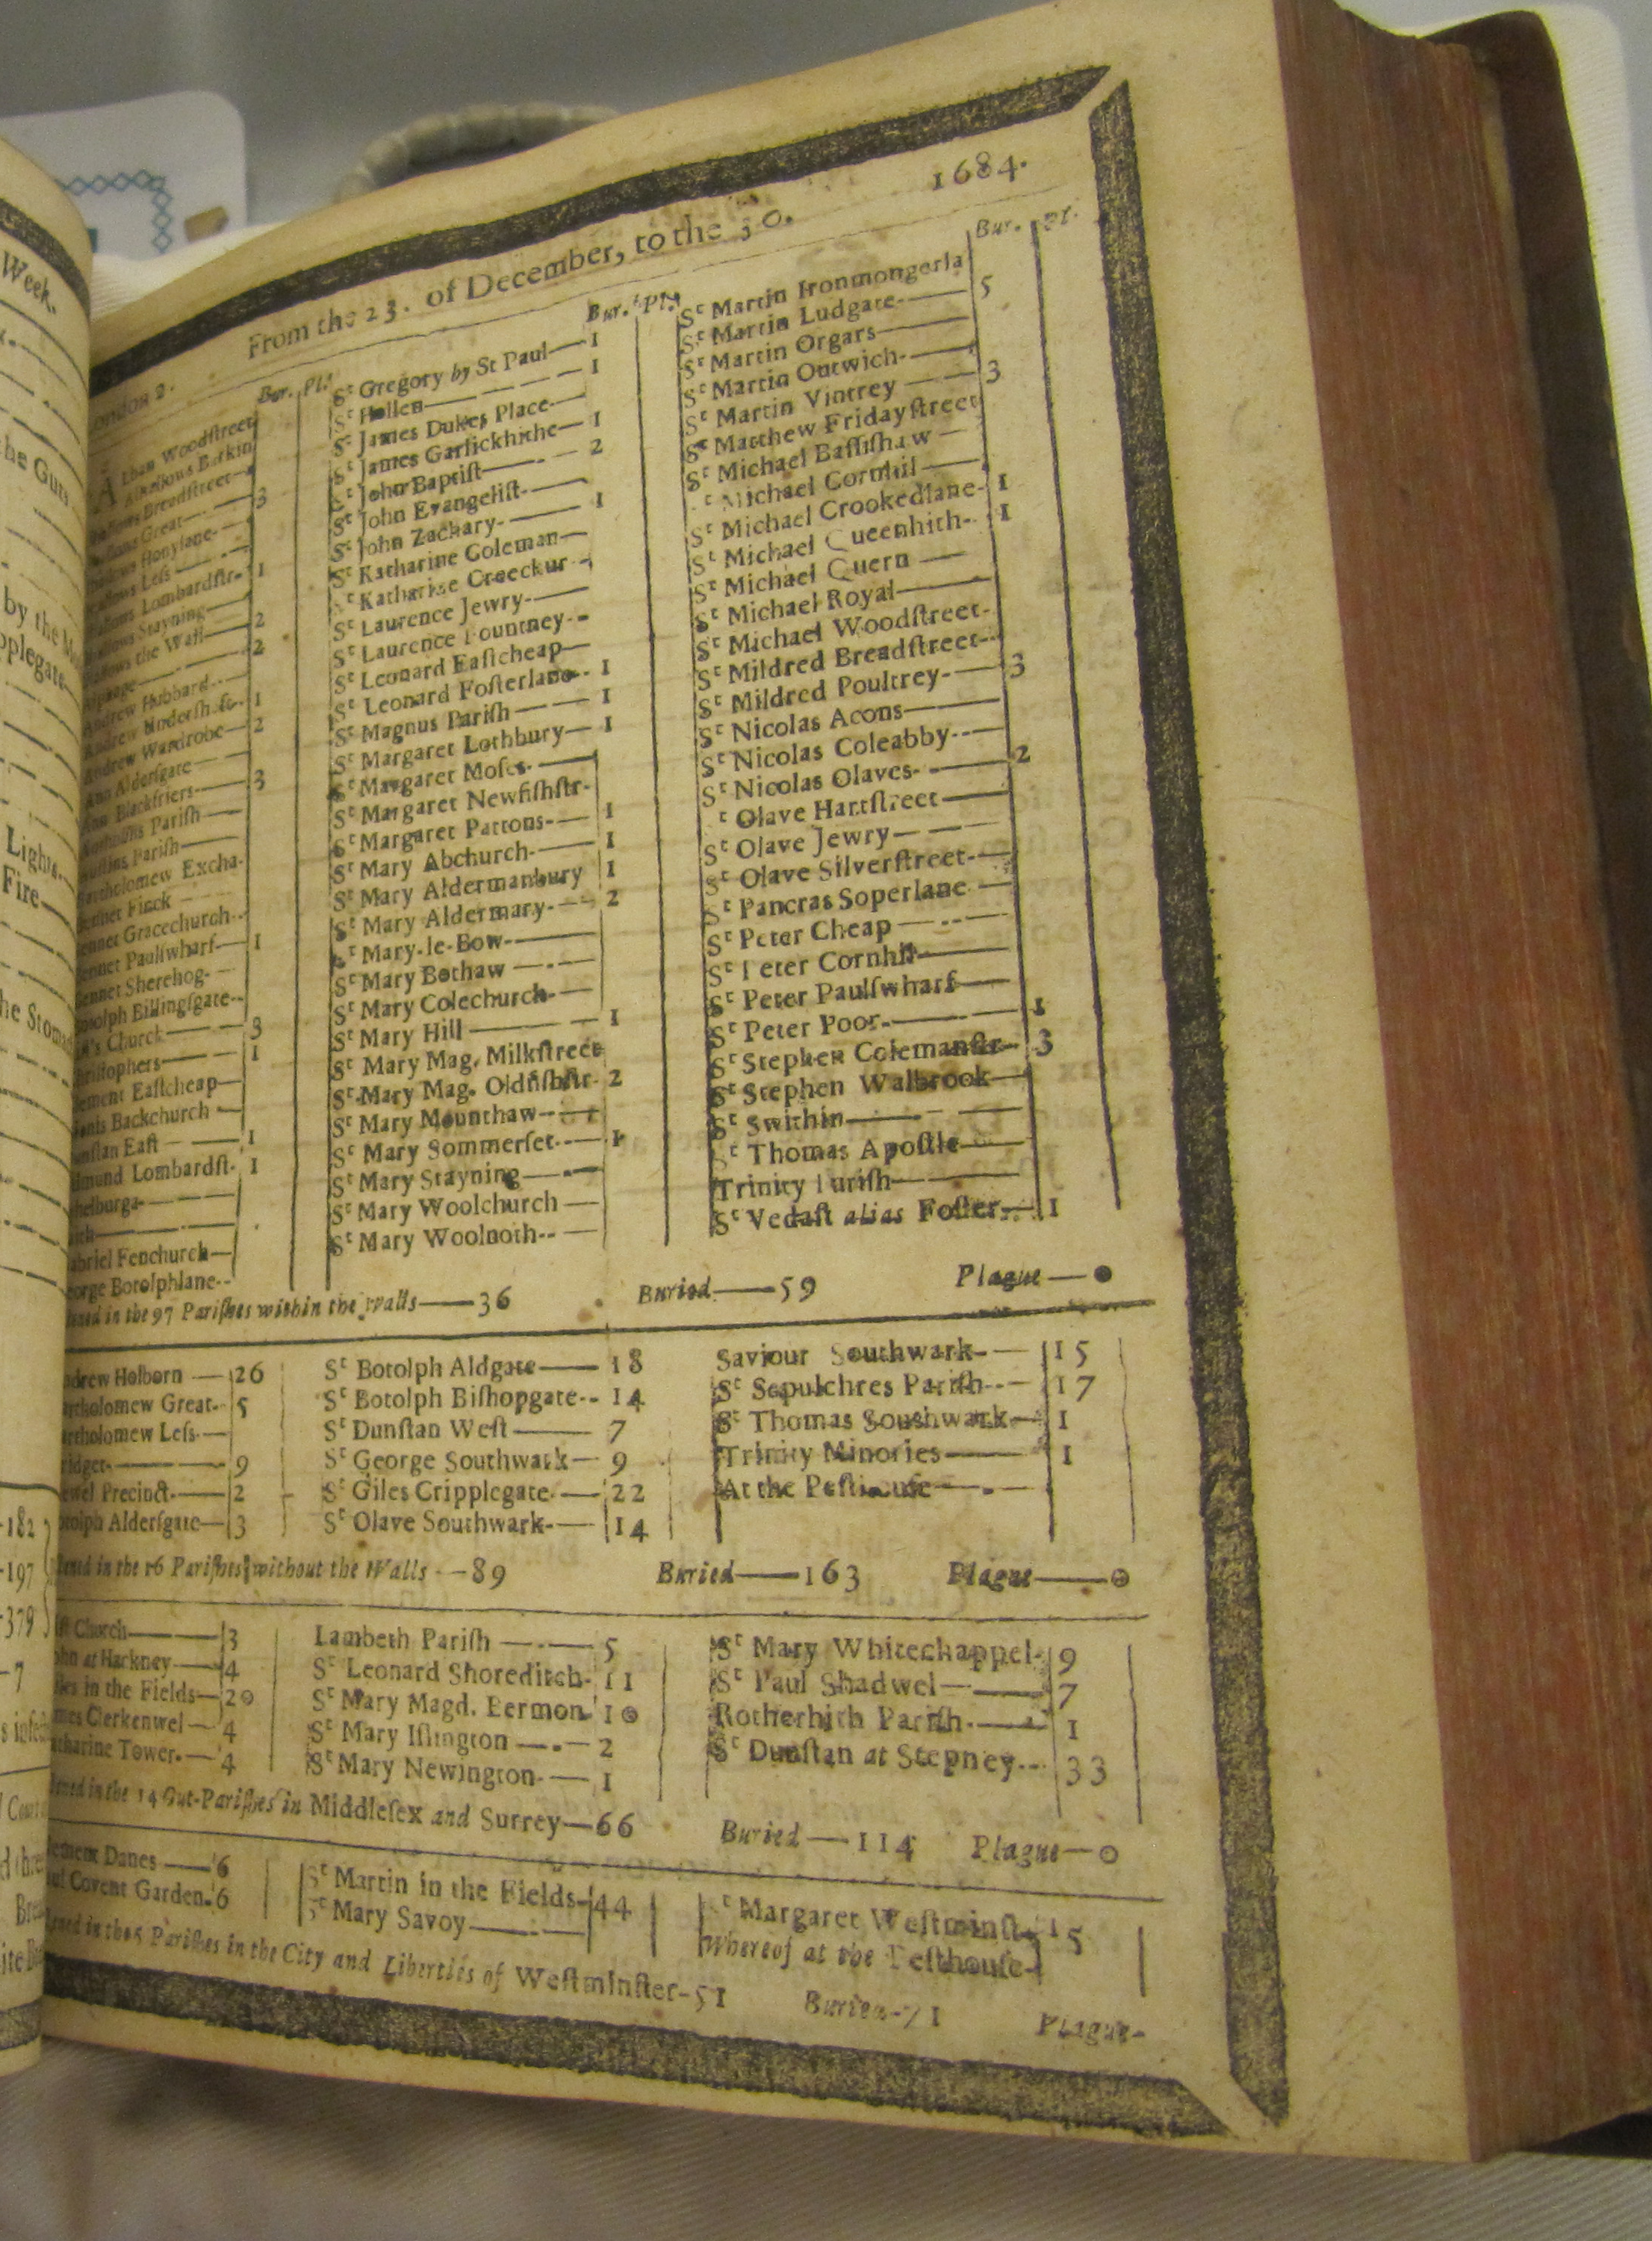 Week.
the Guts
by the
Lights.
Fire
182
197
379
7
From the 23. of December, to the 30. 1684.
Bur. Pl.
Woodstreet
Allhallows Barkin
Breadstreet
Great 3
Honylane
Less
Lombardstr. 1
Stayning
the Wall 2
2
Andrew Hubbard
Andrew Undersh. 1
Andrew Wardrobe 2
Ann Aldersgate
Ann Blackfriers 3
Parish
Parish
Bartholomew Excha.
Bennet Finck
Bennet Gracechurch
Bennet Paulswharf 1
Bennet Sherehog
Botolph Billingsgate
Church 3
1
Eastcheap
Backchurch
East 1
Lombardst. 1
Fenchurch
Botolphlane
Bur. Pl.
St Gregory by St Paul—1
St Hellen— 1
St James Dukes Place
St James Garlickhithe—1
St John Baptist— 2
St John Evangelist
St John Zachary— 1
St Katharine Coleman
St Katharine Creechur
St Laurence Jewry
St Laurence Pountney
St Leonard Eastcheap
St Leonard Fosterlane 1
St Magnus Parish— 1
St Margaret Lothbury— 1
St Margaret Moses
St Margaret Newfishstr.
St Margaret Pattons— 1
St Mary Abchurch— 1
St Mary Aldermanbury 1
St Mary Aldermary— 2
St Mary-le-Bow
St Mary Bothaw
St Mary Colechurch
St Mary Hill— 1
St Mary Mag. Milkstreet
St Mary Mag. Oldfishstr. 2
St Mary Mounthaw
St Mary Sommerset— 1
St Mary Stayning
St Mary Woolchurch
St Mary Woolnoth
Bur. Pl.
St Martin Ironmongerla
St Martin Ludgate— 5
St Martin Orgars
St Martin Outwich
St Martin Vintrey— 3
St Matthew Fridaystreet
St Michael Bassishaw
Michael Cornhil
St Michael Crookedlane- 1
St Michael Queenhith- 1
St Michael Quern
St Michael Royal
St Michael Woodstreet
St Mildred Breadstreet
St Mildred Poultrey— 3
St Nicolas Acons
St Nicolas Coleabby
St Nicolas Olaves
t Olave Hartstreet— 2
St Olave Jewry
St Olave Silverstreet
St Pancras Soperlane
St Peter Cheap
St Peter Cornhil
St Peter Paulswharf
St Peter Poor— 1
St Stephen Colemanstr— 3
St Stephen Walbrook
St Swithin
St Thomas Apostle
Trinity Parish
St Vedast alias Foster— 1
in the 97 Parishes within the Walls—36 Buried—59 Plague—0
Andrew Holborn—26
Bartholomew Great— 5
Bartholomew Less
9
Precinct— 2
Botolph Aldersgate— 3
St Botolph Aldgate—18
St Botolph Bishopgate--14
St Dunstan West— 7
St George Southwark— 9
St Giles Cripplegate—22
St Olave Southwark—14
Saviour Southwark—15
St Sepulchres Parish—17
St Thomas Southwark— 1
Trinity Minories— 1
At the Pesthouse
in the 16 Parishes without the Walls—89 Buried—163 Plague—0
Church—3
at Hackney—4
in the Fields—20
Clerkenwel—4
Katharine Tower—4
Lambeth Parish—5
St Leonard Shoreditch-11
St Mary Magd. Bermon 10
St Mary Islington—2
St Mary Newington—1
St Mary Whitechappel- 9
St Paul Shadwel—7
Rotherhith Parish—1
St Dunstan at Stepney--33
in the 14 Out-Parishes in Middlesex and Surrey—66 Buried—114 Plague—0
Danes—6
Covent Garden. 6
St Martin in the Fields-44
St Mary Savoy
St Margaret Westminst- 15
Whereof at the Pesthouse
in the 5 Parishes in the City and Liberties of Westminster-51 Buried-71 Plague-